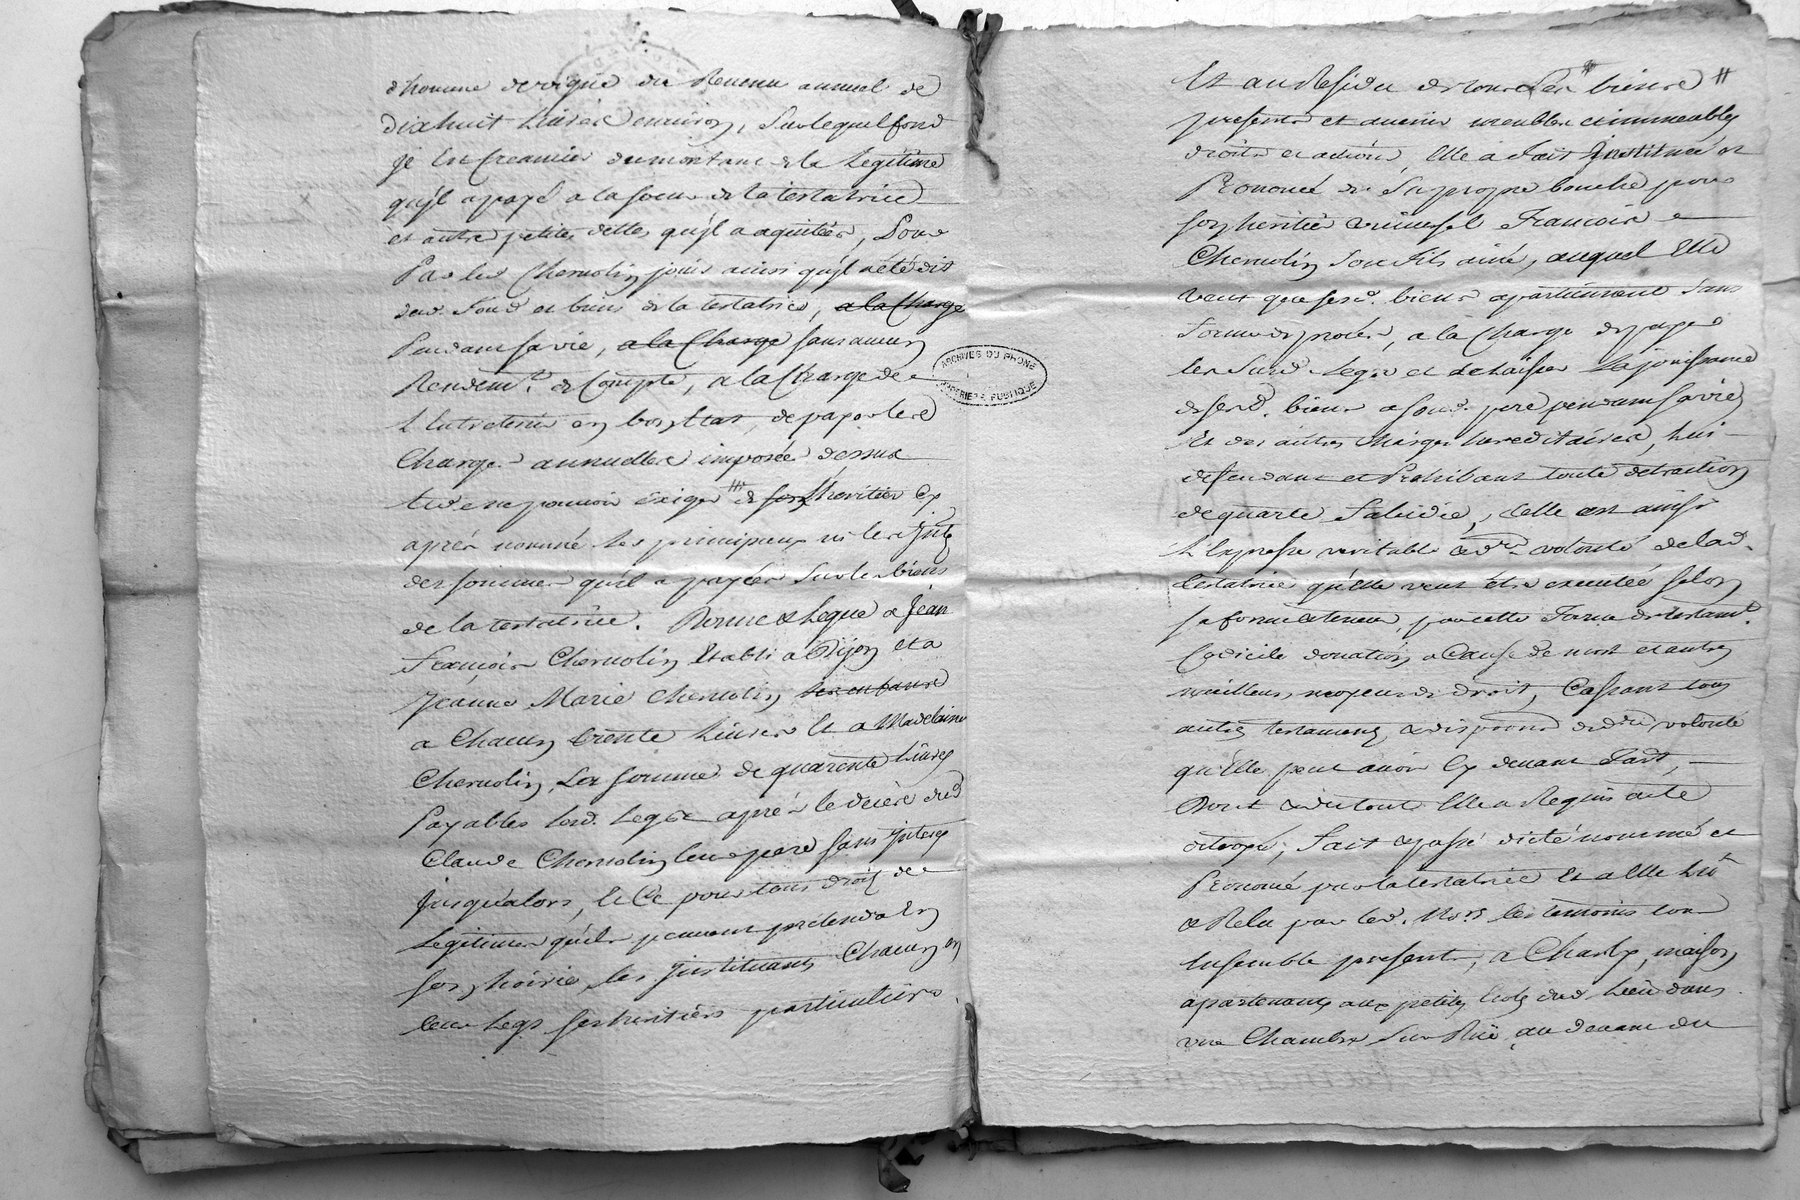 d'homme de vigne du Revenu annuel de
dixhuit Livres environ, Sur lequel fond
je est Creancier du montant de la Legitime
qu'jl a payé a la soeur de la testatrice
et autre petites dettes qu'jl a aquitées, Pour
Par led Chermolin jouir ainsi qu'jl a été dit
desd. Fond et biens de la testatrice, a la Charge
Pendant sa vie, a la Charge sans aucun
Rendemt. de Compte, a la Charge de
L'Entretenir en bon Etat, de payer les
Charges annuelles imposées dessus
et de ne pouvoir exiger de son heritier cy
après nommé les principeaux ni les jnts
des sommes qu'il a payées sur les biens
de la testatrice. Donne & Legue a Jean
François Chermolin Etabli a Dijon et a
Jeanne Marie Chermolin ses enfants
a Chacun trente Livres Et a Madelaine
Chermolin, La somme de quarente Livres
Payables lesd. Legs après le decès dud
Claude Chermolin leur pere sans jnterest
jusqu'alors, Et Ce pour tous droits de
Legitimes qu'ils peuvent pretendre En
son hoirie, les jnstituants Chacun en
leur Legs ses heritiers particuliers.
ARCHIVES DU RHONE
PROPRIETE PUBLIQUE
Et au Residu de tous ses biens
presents et avenir meubles et immeubles
droits et actions, Elle a fait jnstitué et
Prononcé de sa propre bouche pour
son heritier universel François
Chermolin son fils ainé, auquel Elle
veut que sesd. biens apartiennent sans
forme de procès, a la Charge de payer
les susd. Legs et de laisser La jouissance
de sesd. biens a sond. pere pendant sa vie
Et des autres charges hereditaires, Lui
defendant et Prohibant toute detraction
de quarte Falcidie, telle est ainsi
L'Expresse veritable & dre. volonté de lad.
testatrice qu'elle veut être executée selon
sa forme & teneur, par cette Forme de testamt.
Codicile donation a Cause de mort et autres
meilleurs moyens de droit, Cassant tous
autres testaments & dispositions de dre. volonté
qu'Elle peut avoir Cy devant Fait,
Dont & du tout Elle a Requis acte
octroyé, Fait & passé dicté nommé et
Prononcé par la testatrice Et a Elle Lû
& Relu par led. Nore. les temoins tous
Ensemble presents, a Charly, maison
apartenant aux petites Ecoles dud. Lieu dans
une Chambre Sur Rüe, au devant du